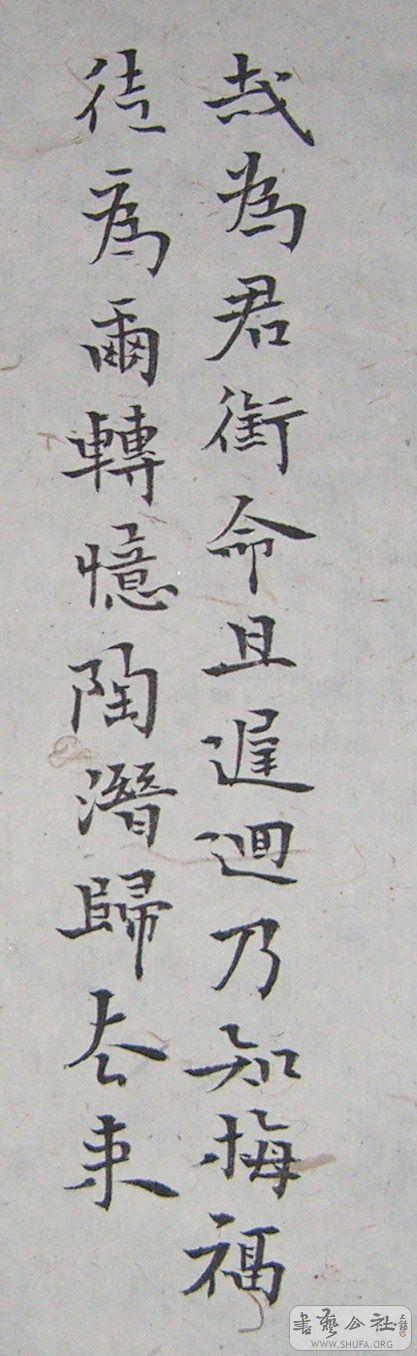 哉為君銜命且遲迴乃知梅福
徒為爾轉憶陶潛歸去来
書藝公社
WWW.SHUFA.ORG